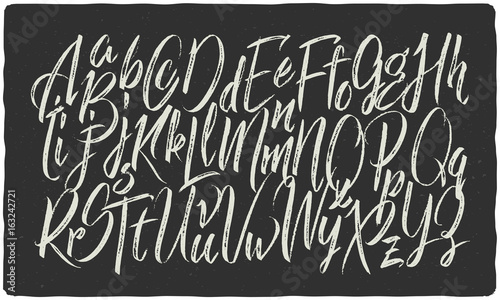 Aa Bb Cc Dd Ee Ff Gg Hh
Ii Jj Kk Ll Mm Nn Oo Pp Qq
Rr Ss Tt Uu Vv Ww Xx Yy Zz
Adobe Stock | #163242721